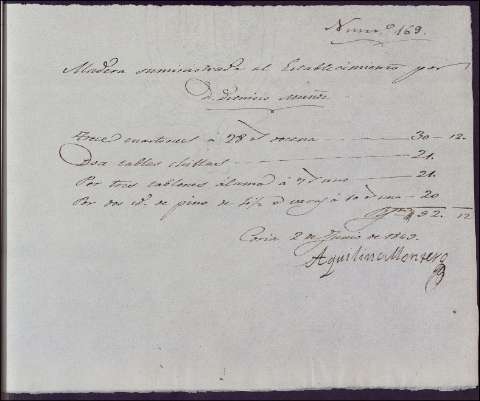 Num.º 169.
Madera suministrada al Establecimiento por
D. Dionicio Muñoz
Trece cuartones á 28 rˢ docena 30 12.
Dos tablas chillas 21.
Por tres tablones álamo á 7 rˢ uno 21.
Por dos id. de pino de á 10 rˢ uno 20
92. 12
Coria 2 de Junio de 1849.
Aquilino Montero